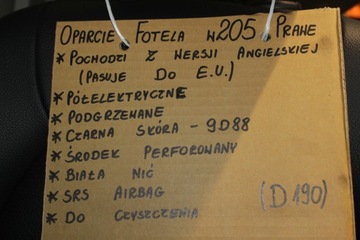 OPARCIE FOTELA W205 PRAWE
* POCHODZI Z WERSJI ANGIELSKIEJ
(PASUJE DO E.U.)
* PÓŁELEKTRYCZNE
* PODGRZEWANE
* CZARNA SKÓRA - 9D88
* ŚRODEK PERFOROWANY
* BIAŁA NIĆ
* SRS AIRBAG (D190)
* DO CZYSZCZENIA